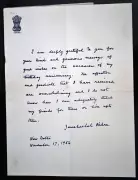 I am deeply grateful to you for
your kind and generous message of
good wishes on the occasion of my
birthday anniversary. The affection
and goodwill that I have received
are overwhelming and I do not
know how I can adequately thank
my friends for them
Jawaharlal Nehru
New Delhi
November 17, 1954